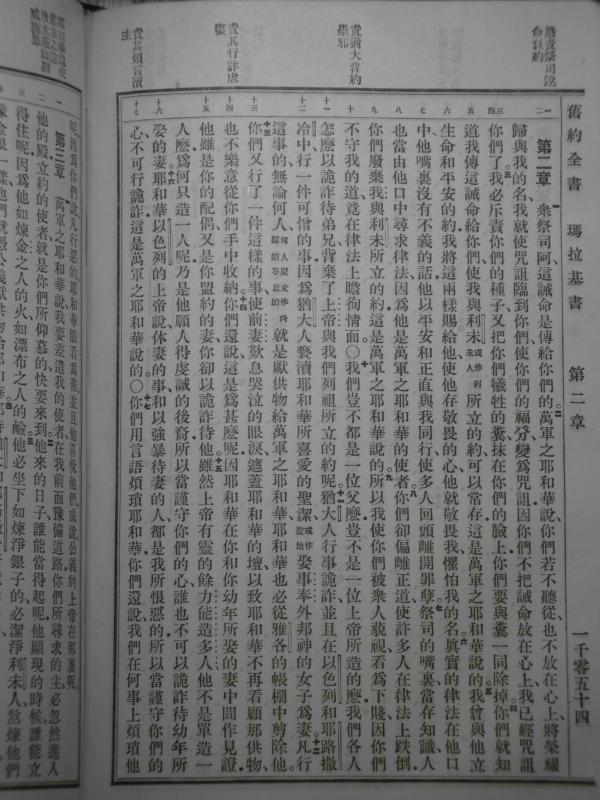 舊約全書 瑪拉基書 第二章 一千零五十四
嚴責祭司違命負約
責猶大背約褻耶
責其行詐虐妻
責其煩言瀆主
第二章 衆祭司阿這誡命是傳給你們的萬軍之耶和華說你們若不聽從也不放在心上將榮耀
歸與我的名我就使咒詛臨到你們使你們的福分變爲咒詛因你們不把誡命放在心上我已經咒詛
你們了我必斥責你們的種子又把你們犧牲的糞抹在你們的臉上你們要與糞一同除掉你們就知
道我傳這誡命給你們使我與利未或作利未人所立的約可以常存這是萬軍之耶和華說的我曾與他立
生命和平安的約我將這兩樣賜給他使他存敬畏的心他就敬畏我懼怕我的名眞實的律法在他口
中他嘴裏沒有不義的話他以平安和正直與我同行使多人回頭離開罪孽祭司的嘴裏當存知識人
也當由他口中尋求律法因爲他是萬軍之耶和華的使者你們卻偏離正道使許多人在律法上跌倒
你們廢棄我與利未所立的約這是萬軍之耶和華說的所以我使你們被衆人藐視看爲下賤因你們
不守我的道竟在律法上瞻徇情面〇我們豈不都是一位父麽豈不是一位上帝所造的麽我們各人
怎麽以詭詐待弟兄背棄了上帝與我們列祖所立的約呢猶大人行事詭詐並且在以色列和耶路撒
冷中行一件可憎的事因爲猶大人褻瀆耶和華所喜愛的聖潔或作聖地娶事奉外邦神的女子爲妻凡行
這事的無論何人何人原文作叫醒的答應的就是獻供物給萬軍之耶和華耶和華也必從雅各的帳棚中剪除他
你們又行了一件這樣的事使前妻歎息哭泣的眼淚遮蓋耶和華的壇以致耶和華不再看顧那供物
也不樂意從你們手中收納你們還說這是爲甚麽呢因耶和華在你和你幼年所娶的妻中間作見證
他雖是你的配偶又是你盟約的妻你卻以詭詐待他雖然上帝有靈的餘力能造多人他不是單造一
人麽爲何只造一人呢乃是他願人得虔誠的後裔所以當謹守你們的心誰也不可以詭詐待幼年所
娶的妻耶和華以色列的上帝說休妻的事和以強暴待妻的人都是我所恨惡的所以當謹守你們的
心不可行詭詐這是萬軍之耶和華說的〇你們用言語煩瑣耶和華你們還說我們在何事上煩瑣他
呢因爲你們說凡行惡的耶和華眼看爲善並且他喜悅他們或說公義的上帝在那裏呢
第三章 萬軍之耶和華說我要差遣我的使者在我前面豫備道路你們所尋求的主必忽然進入
他的殿立約的使者就是你們所仰慕的快要來到他來的日子誰能當得起呢他顯現的時候誰能立
得住呢因爲他如煉金之人的火如漂布之人的鹼他必坐下如煉淨銀子的必潔淨利未人熬煉他們